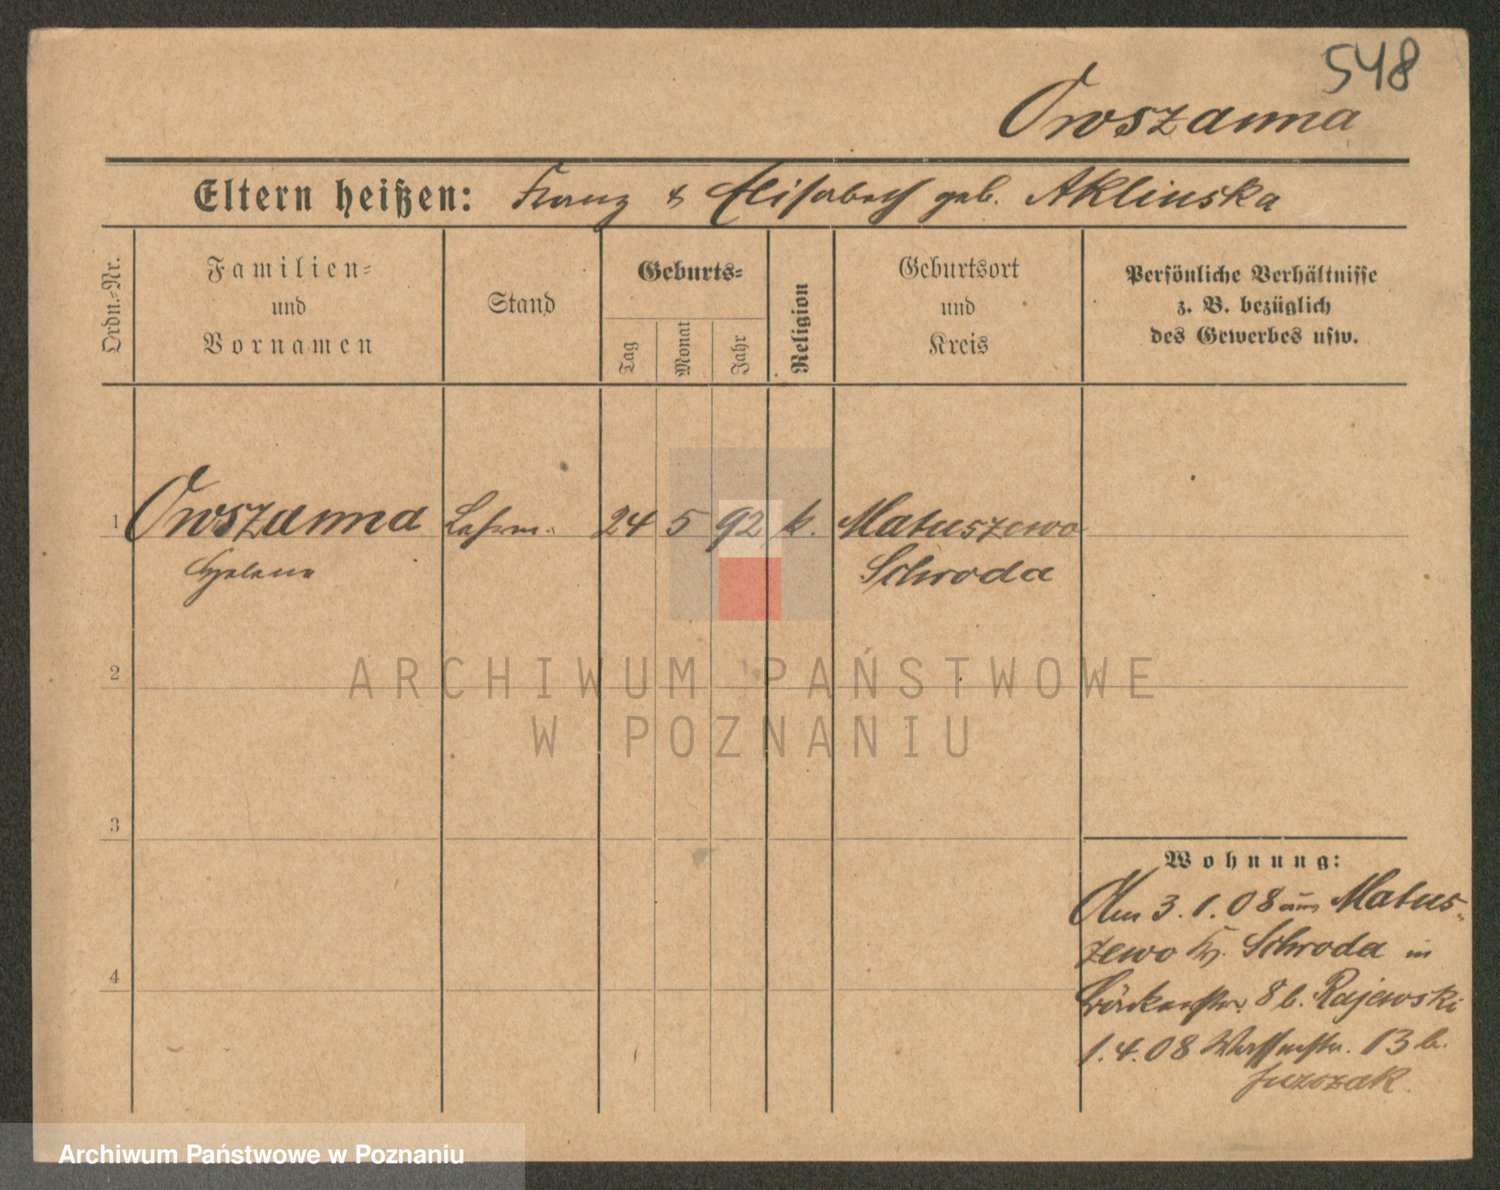 548
Owszanna
Eltern heißen: Franz & Elisabeth geb. Aklinska
Ordn.-Nr.
Familien-
und
Vornamen
Stand
Geburts-
Tag
Monat
Jahr
Religion
Geburtsort
und
Kreis
Persönliche Verhältnisse
z. B. bezüglich
des Gewerbes usw.
1 Owszanna 24 5 92 k. Matuszewo
Helene Schroda
2
ARCHIWUM PAŃSTWOWE
W POZNANIU
3
Wohnung:
Am 3.1.08 aus Matus-
zewo Kr. Schroda in
8 b. Rajewski
4
1.4.08 13 b.
Archiwum Państwowe w Poznaniu